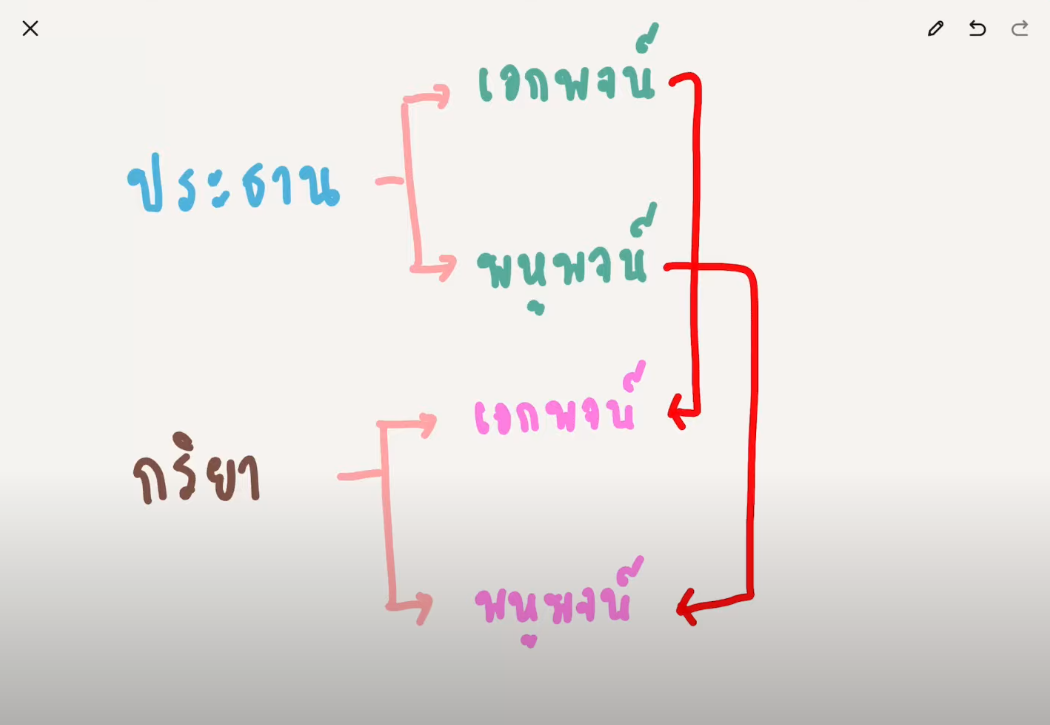 ประธาน
เอกพจน์
พหูพจน์
กริยา
เอกพจน์
พหูพจน์